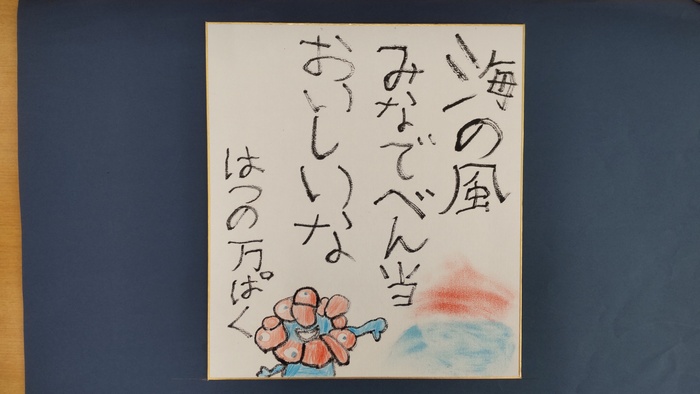 海の風
みなでべん当
おいしいな
はつの万ぱく